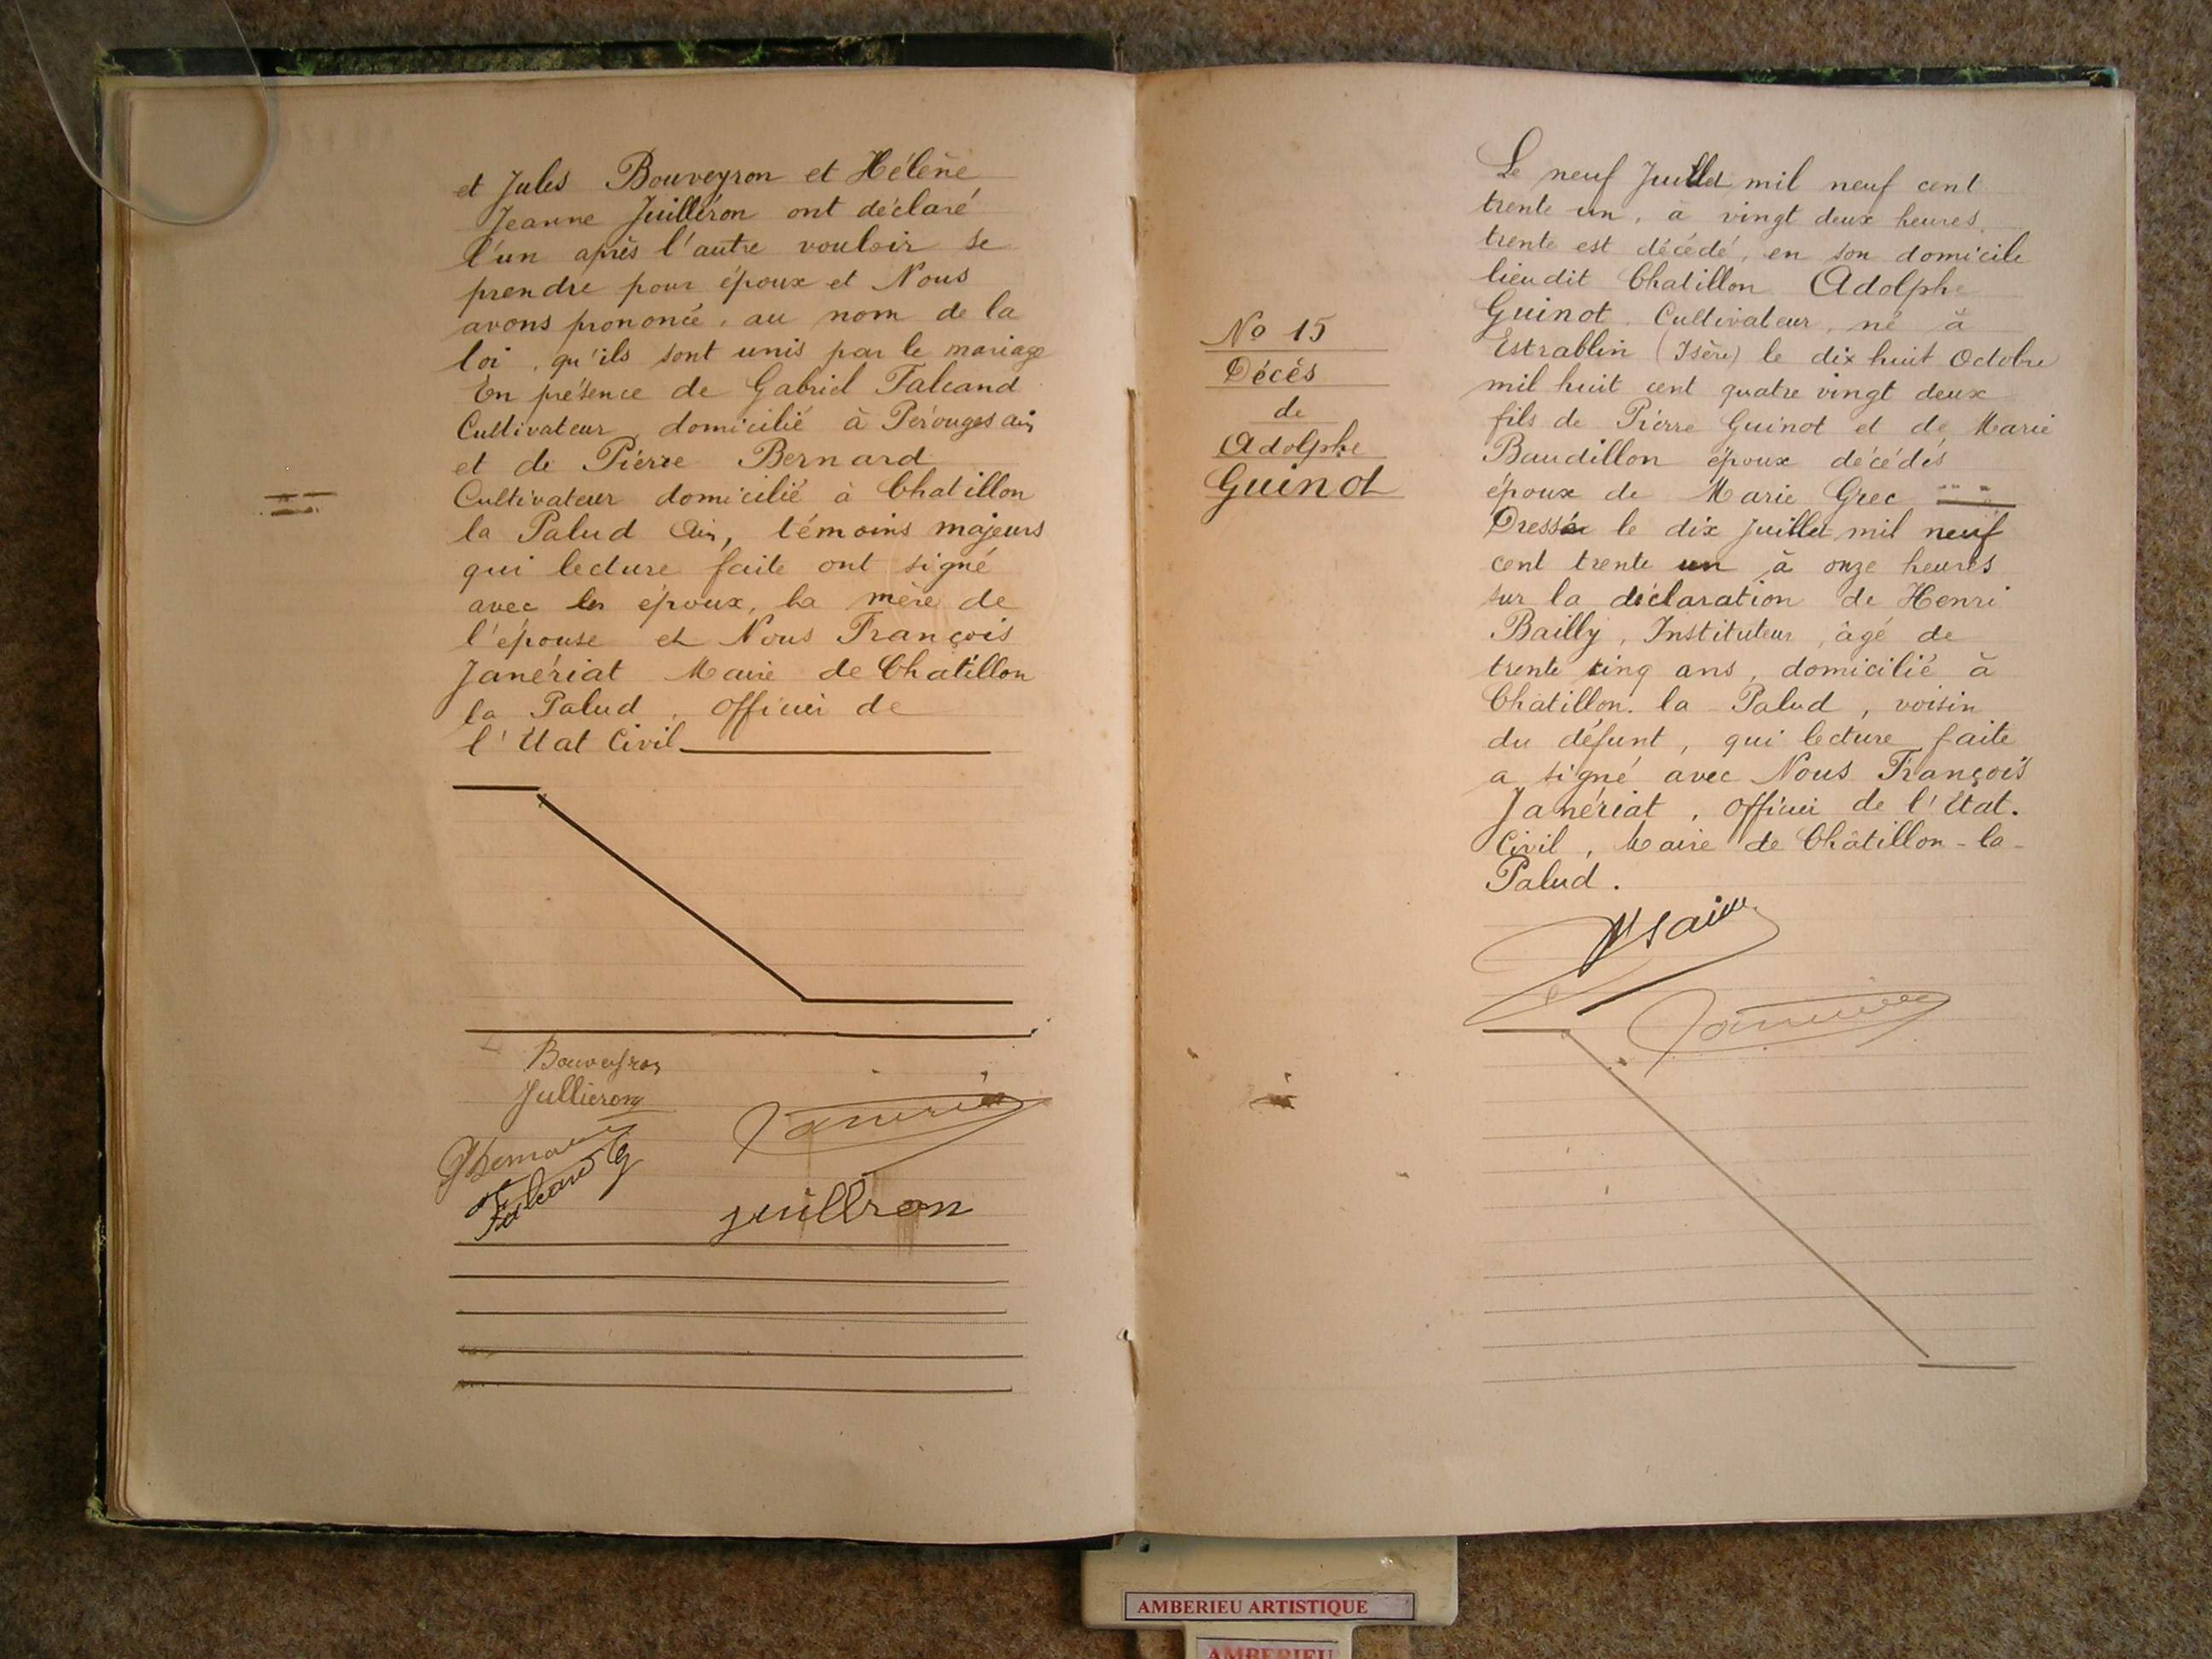 et Jules Bouveyron et Hélène
Jeanne Juilléron ont déclaré
l'un après l'autre vouloir se
prendre pour époux et Nous
avons prononcé, au nom de la
loi, qu'ils sont unis par le mariage
En présence de Gabriel Falcand
Cultivateur, domicilié à Pérouges Ain,
et de Pierre Bernard
Cultivateur domicilié à Chatillon
la Palud Ain, témoins majeurs
qui lecture faite ont signé
avec les époux, la mère de
l'épouse et Nous François
Janériat Maire de Chatillon
la Palud, Officier de
l'Etat Civil
Bouveyron
Jullieron
Falcand G
juillron
No 15
Décès
de
Adolphe
Guinot
Le neuf Juillet mil neuf cent
trente un, à vingt deux heures
trente est décédé, en son domicile
lieudit Chatillon Adolphe
Guinot, Cultivateur, né à
Estrablin (Isère) le dix huit Octobre
mil huit cent quatre vingt deux
fils de Pierre Guinot et de Marie
Baudillon époux décédés
époux de Marie Grec
Dressé le dix Juillet mil neuf
cent trente un à onze heures
sur la déclaration de Henri
Bailly, Instituteur, âgé de
trente cinq ans, domicilié à
Châtillon. la Palud, voisin
du défunt, qui lecture faite
a signé avec Nous François
Janériat, Officier de l'Etat.
Civil, Maire de Châtillon-la-
Palud.
AMBERIEU ARTISTIQUE
AMBERIEU